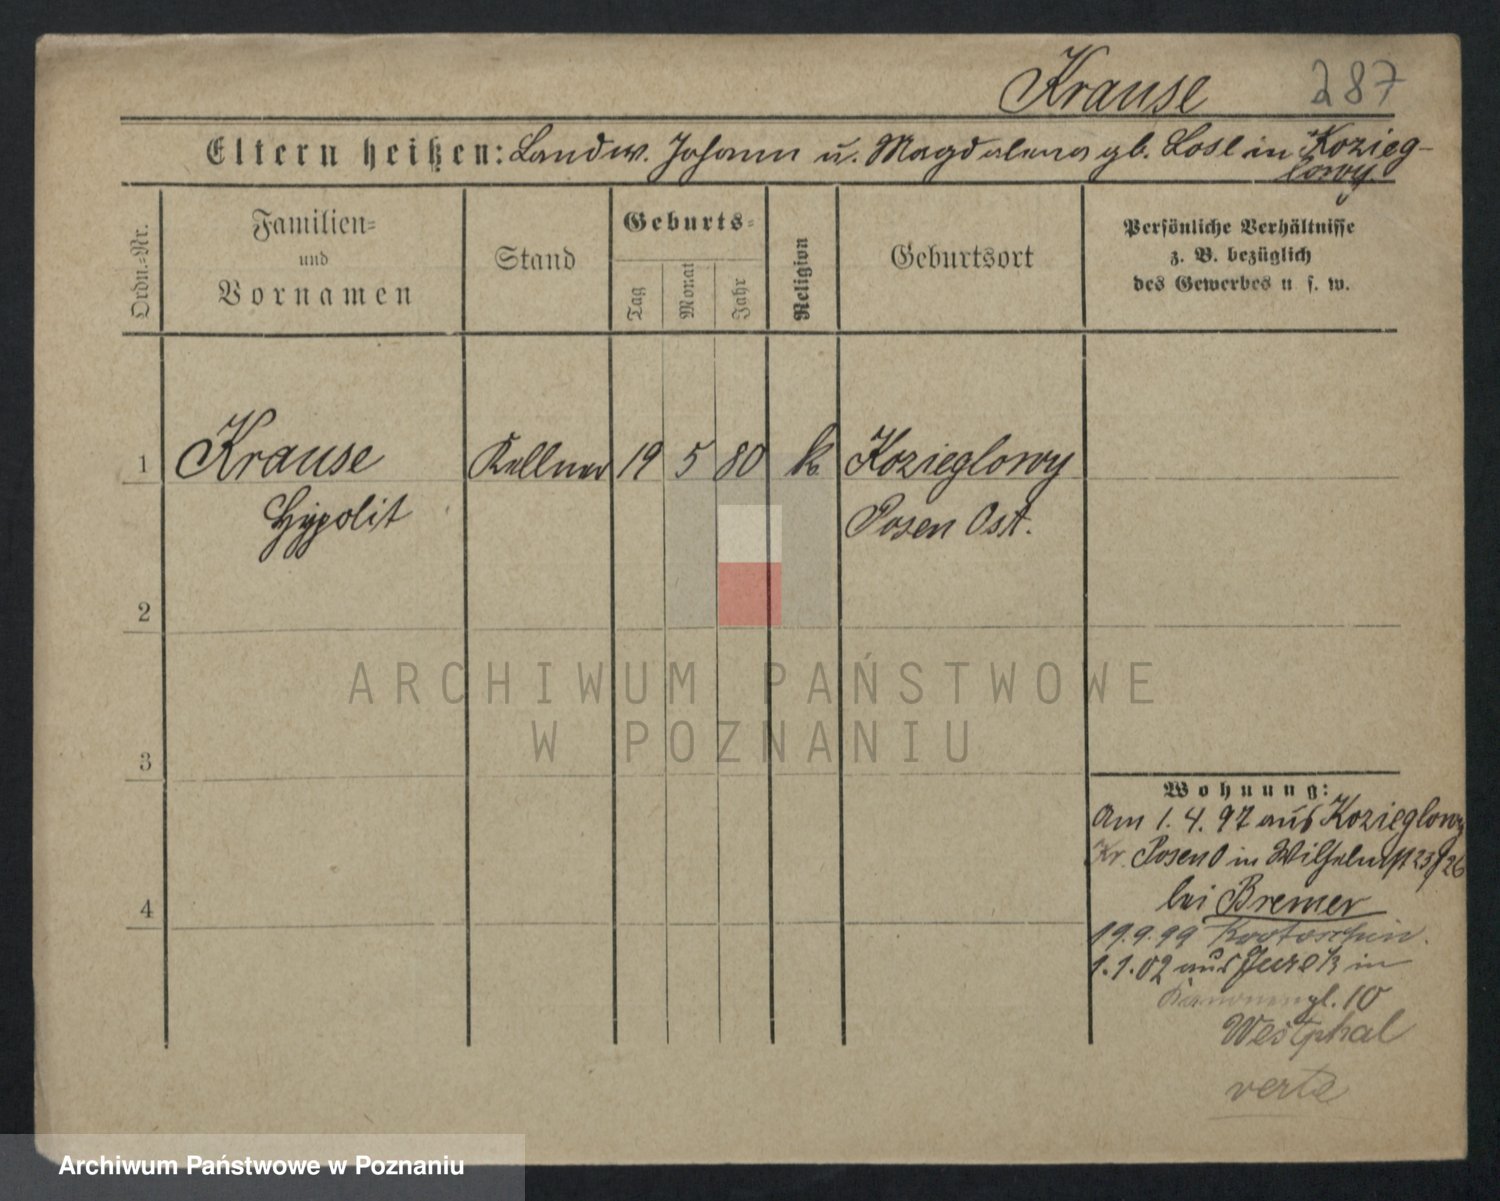 Krause 287
Eltern heißen: Landw. Johann u. Magdalena gb. Losl in Kozieg-
lowy
Ordn.-Nr.
Familien-
und
Vornamen
Stand
Geburts-
Tag
Monat
Jahr
Religion
Geburtsort
Persönliche Verhältnisse
z. B. bezüglich
des Gewerbes u s. w.
1 Krause Kellner 19 5 80 k Kozieglowy
Hypolit Posen Ost.
2
ARCHIWUM PAŃSTWOWE
W POZNANIU
3
Wohnung:
Am 1.4.97 aus Kozieglowy
Kr. Posen O in Wilhelmst 23/26
4
bei Bremer
19.9.99 Krotoschin.
1.1.02 aus in
Kanonenpl. 10
Westphal
verte
Archiwum Państwowe w Poznaniu